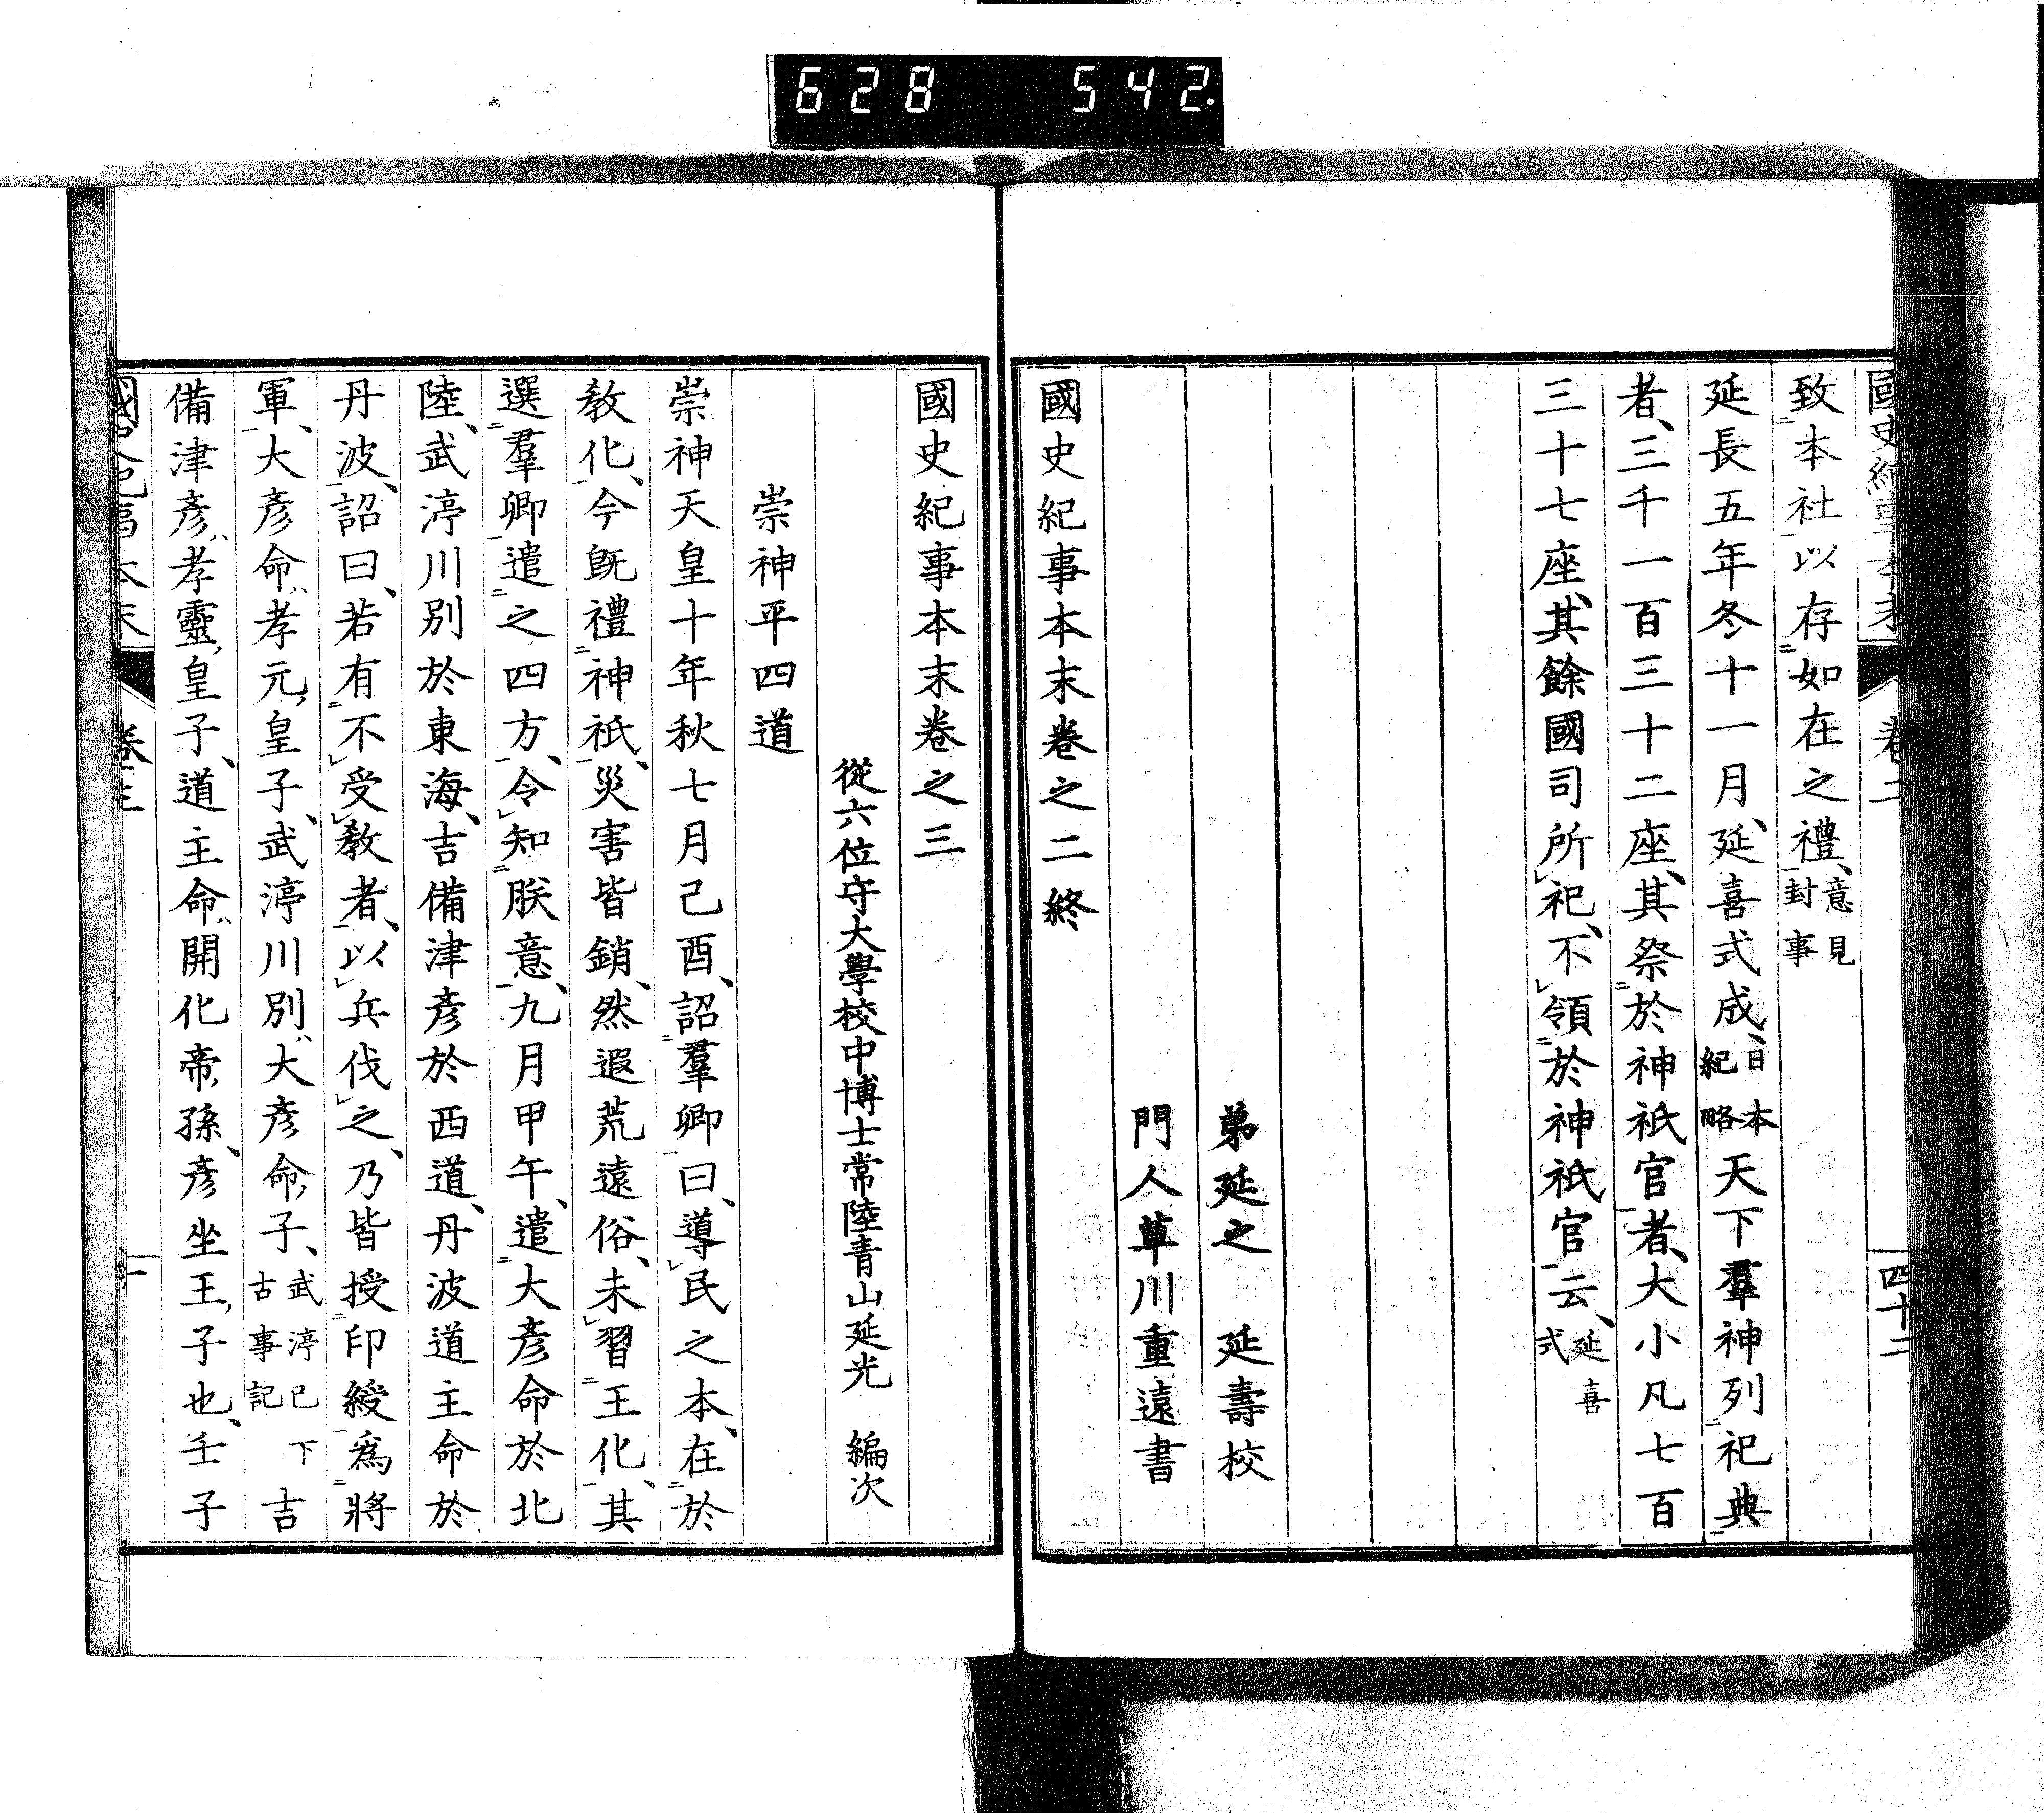 628 542.
國史紀事本末 卷二 四十二
致本社以存如在之禮、意見封事
延長五年冬十一月、延喜式成、日本紀略天下羣神列祀典
者、三千一百三十二座、其祭於神祇官者、大小凡七百
三十七座、其餘國司所祀、不領於神祇官云、延喜式
弟延之 延壽校
門人草川重遠書
國史紀事本末卷之二終
國史紀事本末卷之三
從六位守大學校中博士常陸青山延光 編次
崇神平四道
崇神天皇十年秋七月己酉、詔羣卿曰、導民之本、在於
敎化、今旣禮神祇、災害皆銷、然遐荒遠俗、未習王化、其
選羣卿遣之四方、令知朕意、九月甲午、遣大彥命於北
陸、武渟川別於東海、吉備津彥於西道、丹波道主命於
丹波、詔曰、若有不受敎者、以兵伐之、乃皆授印綬爲將
軍、大彥命、孝元皇子、武渟川別、大彥命子、武渟已下古事記吉
備津彥、孝靈皇子、道主命、開化帝孫、彥坐王子也、壬子
國史紀事本末 卷三 一